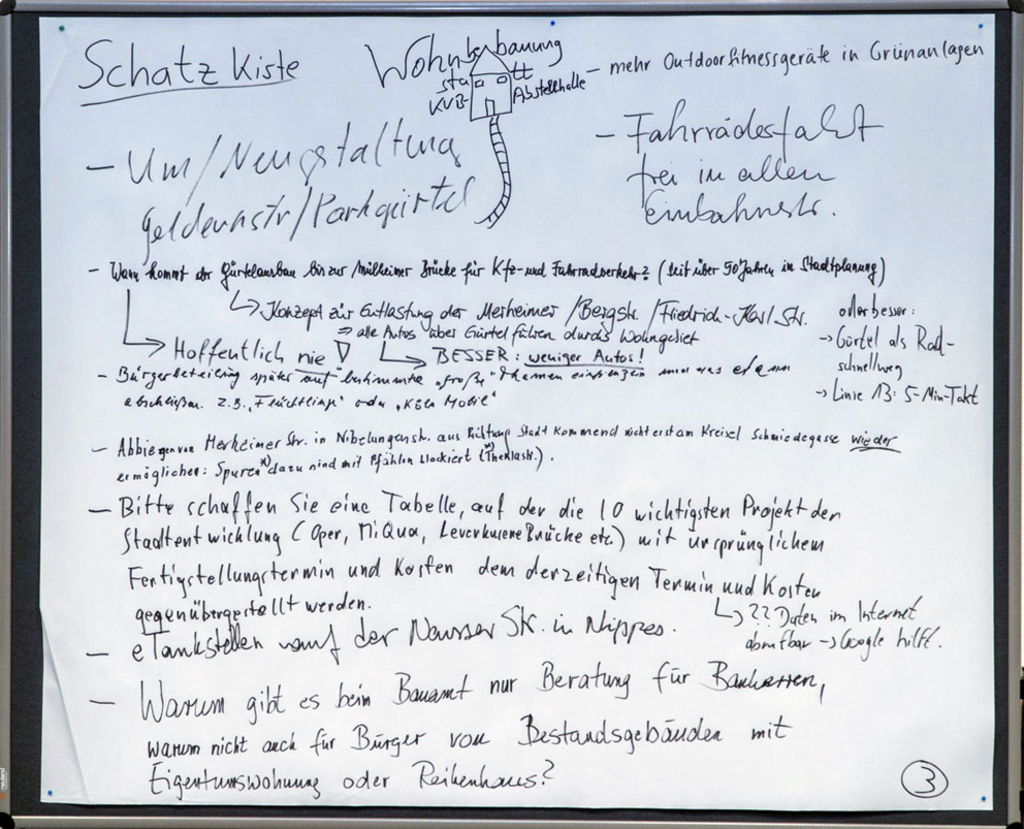 Schatz Kiste
Wohnbebauung
statt
KVB-Abstellhalle
- mehr Outdoorfitnessgeräte in Grünanlagen
- Um/Neugstaltung
Geldernstr/Parkgürtel
- Fahrrädesfahrt
frei in allen
Einbahnstr.
- Wann kommt der Gürtelausbau bis zur Mülheimer Brücke für Kfz- und Fahrradverkehr? (seit über 50 Jahren in Stadtplanung)
↳ Konzept zur Entlastung der Merheimer / Bergstr. / Friedrich-Karl Str.
⇒ alle Autos über Gürtel führen durchs Wohngebiet
↳ Hoffentlich nie !
↳ BESSER: weniger Autos!
oder besser:
→ Gürtel als Rad-
schnellweg
→ Linie 13: 5-Min-Takt
- Bürgerbeteilung später auf bestimmte "große" Themen eingrenzen und was
abschließen. z.B. "Flüchtlinge" oder "Köln Mobil"
- Abbiegen von Merheimer Str. in Nibelungenstr. aus Richtung Stadt kommend nicht erst am Kreisel Schmiedegasse wieder
ermöglichen: Spuren*) dazu sind mit Pfählen blockiert (*)Theklastr.).
- Bitte schaffen Sie eine Tabelle, auf der die 10 wichtigsten Projekt der
Stadtentwicklung (Oper, MiQua, Leverkusener Brücke etc.) mit ursprünglichem
Fertigstellungstermin und Kosten dem derzeitigen Termin und Kosten
gegenübergestellt werden.
↳ ?? Daten im Internet
abrufbar → Google hilft.
- eTankstellen auf der Neusser Str. in Nippes.
- Warum gibt es beim Bauamt nur Beratung für Bauherren,
warum nicht auch für Bürger von Bestandsgebäuden mit
Eigentumswohnung oder Reihenhaus?
3